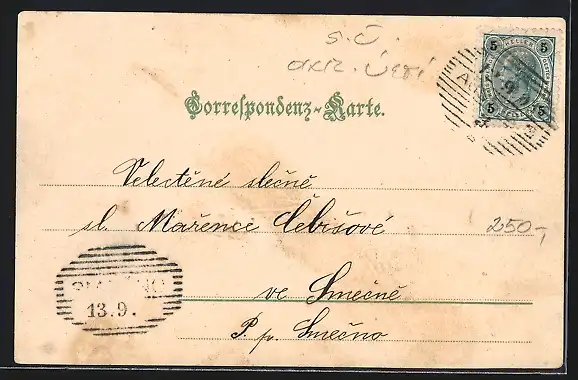 s.č.
okr. Ústí
5 HELLER 5
5 5
Correspondenz-Karte.
Velectěné slečně
sl. Mařence Čebišové
250,-
SMEČNO
13.9.
ve Smečně
P. p. Smečno